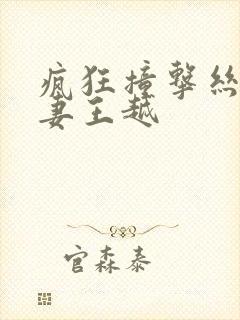 瘋狂撞擊絲
妻王越
官森泰